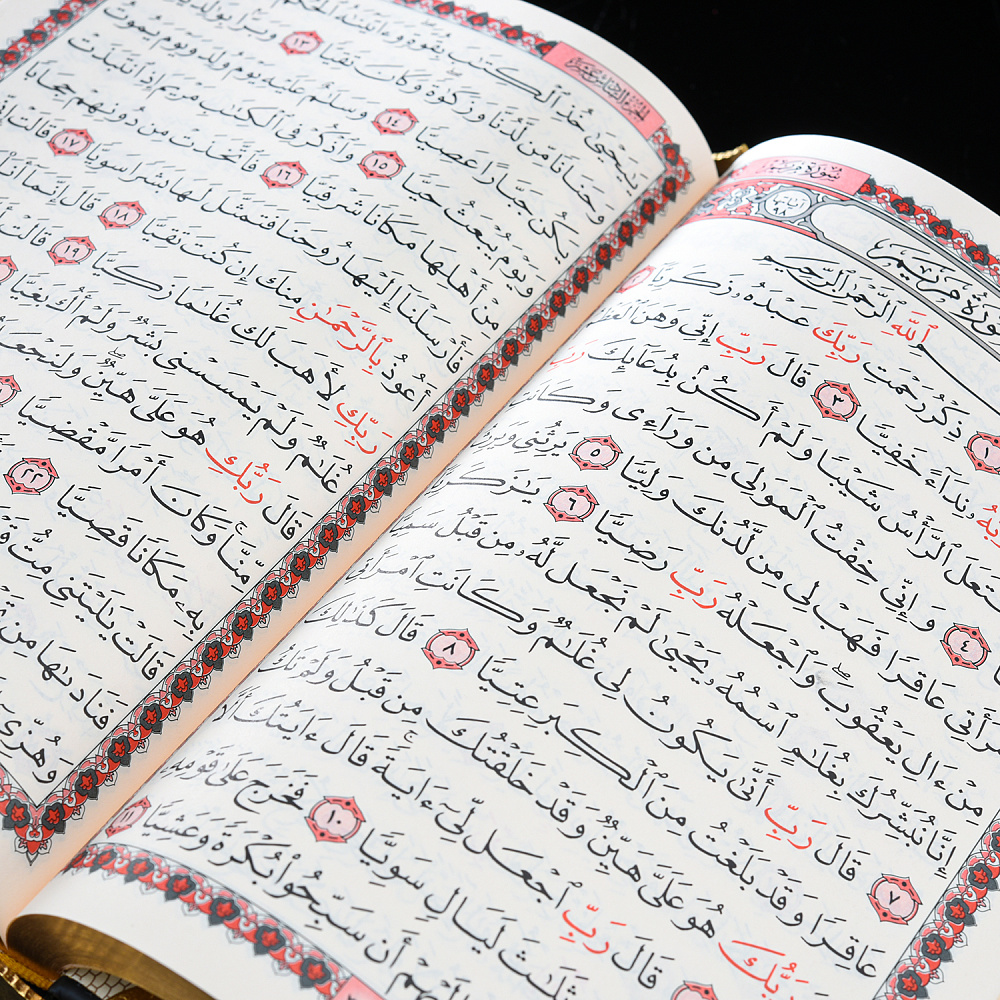 سُورَةُ مَرۡيَمَ
بِسۡمِ ٱللَّهِ ٱلرَّحۡمَٰنِ ٱلرَّحِيمِ
ذِكۡرُ رَحۡمَتِ رَبِّكَ عَبۡدَهُۥ زَكَرِيَّآ
نِدَآءً خَفِيّٗا ٣ قَالَ رَبِّ إِنِّي وَهَنَ ٱلۡعَظۡمُ
ٱلرَّأۡسُ شَيۡبٗا وَلَمۡ أَكُنۢ بِدُعَآئِكَ رَبِّ
٤ وَإِنِّي خِفۡتُ ٱلۡمَوَٰلِيَ مِن وَرَآءِي وَكَانَتِ
ٱمۡرَأَتِي عَاقِرٗا فَهَبۡ لِي مِن لَّدُنكَ وَلِيّٗا ٥ يَرِثُنِي وَيَرِثُ
مِنۡ ءَالِ يَعۡقُوبَۖ وَٱجۡعَلۡهُ رَبِّ رَضِيّٗا ٦ يَٰزَكَرِيَّآ
إِنَّا نُبَشِّرُكَ بِغُلَٰمٍ ٱسۡمُهُۥ يَحۡيَىٰ لَمۡ نَجۡعَل لَّهُۥ مِن قَبۡلُ سَمِيّٗا
٧ قَالَ رَبِّ أَنَّىٰ يَكُونُ لِي غُلَٰمٞ وَكَانَتِ ٱمۡرَأَتِي
عَاقِرٗا وَقَدۡ بَلَغۡتُ مِنَ ٱلۡكِبَرِ عِتِيّٗا ٨ قَالَ كَذَٰلِكَ
رَبُّكَ هُوَ عَلَيَّ هَيِّنٞ وَقَدۡ خَلَقۡتُكَ مِن قَبۡلُ وَلَمۡ تَكُ
قَالَ رَبِّ ٱجۡعَل لِّيٓ ءَايَةٗۖ قَالَ ءَايَتُكَ أَلَّا
ثَلَٰثَ لَيَالٖ سَوِيّٗا ١٠ فَخَرَجَ عَلَىٰ قَوۡمِهِۦ
أَن سَبِّحُواْ بُكۡرَةٗ وَعَشِيّٗا ١١
يَٰيَحۡيَىٰ خُذِ ٱلۡكِتَٰبَ بِقُوَّةٖۖ وَءَاتَيۡنَٰهُ ٱلۡحُكۡمَ
وَحَنَانٗا مِّن لَّدُنَّا وَزَكَوٰةٗۖ وَكَانَ تَقِيّٗا ١٣ وَبَرَّۢا بِوَٰلِدَيۡهِ
يَكُن جَبَّارًا عَصِيّٗا ١٤ وَسَلَٰمٌ عَلَيۡهِ يَوۡمَ وُلِدَ وَيَوۡمَ يَمُوتُ
وَيَوۡمَ يُبۡعَثُ حَيّٗا ١٥ وَٱذۡكُرۡ فِي ٱلۡكِتَٰبِ مَرۡيَمَ إِذِ ٱنتَبَذَتۡ
مِنۡ أَهۡلِهَا مَكَانٗا شَرۡقِيّٗا ١٦ فَٱتَّخَذَتۡ مِن دُونِهِمۡ حِجَابٗا
فَأَرۡسَلۡنَآ إِلَيۡهَا رُوحَنَا فَتَمَثَّلَ لَهَا بَشَرٗا سَوِيّٗا ١٧ قَالَتۡ إِنِّيٓ
أَعُوذُ بِٱلرَّحۡمَٰنِ مِنكَ إِن كُنتَ تَقِيّٗا ١٨ قَالَ إِنَّمَآ أَنَا۠
رَبِّكِ لِأَهَبَ لَكِ غُلَٰمٗا زَكِيّٗا ١٩ قَالَتۡ
غُلَٰمٞ وَلَمۡ يَمۡسَسۡنِي بَشَرٞ وَلَمۡ أَكُ بَغِيّٗا
قَالَ رَبُّكِ هُوَ عَلَيَّ هَيِّنٞۖ وَلِنَجۡعَلَهُۥٓ
مِّنَّاۚ وَكَانَ أَمۡرٗا مَّقۡضِيّٗا
بِهِۦ مَكَانٗا قَصِيّٗا ٢٢
قَالَتۡ يَٰلَيۡتَنِي مِتُّ قَبۡلَ
فَنَادَىٰهَا مِن
وَهُزِّيٓ